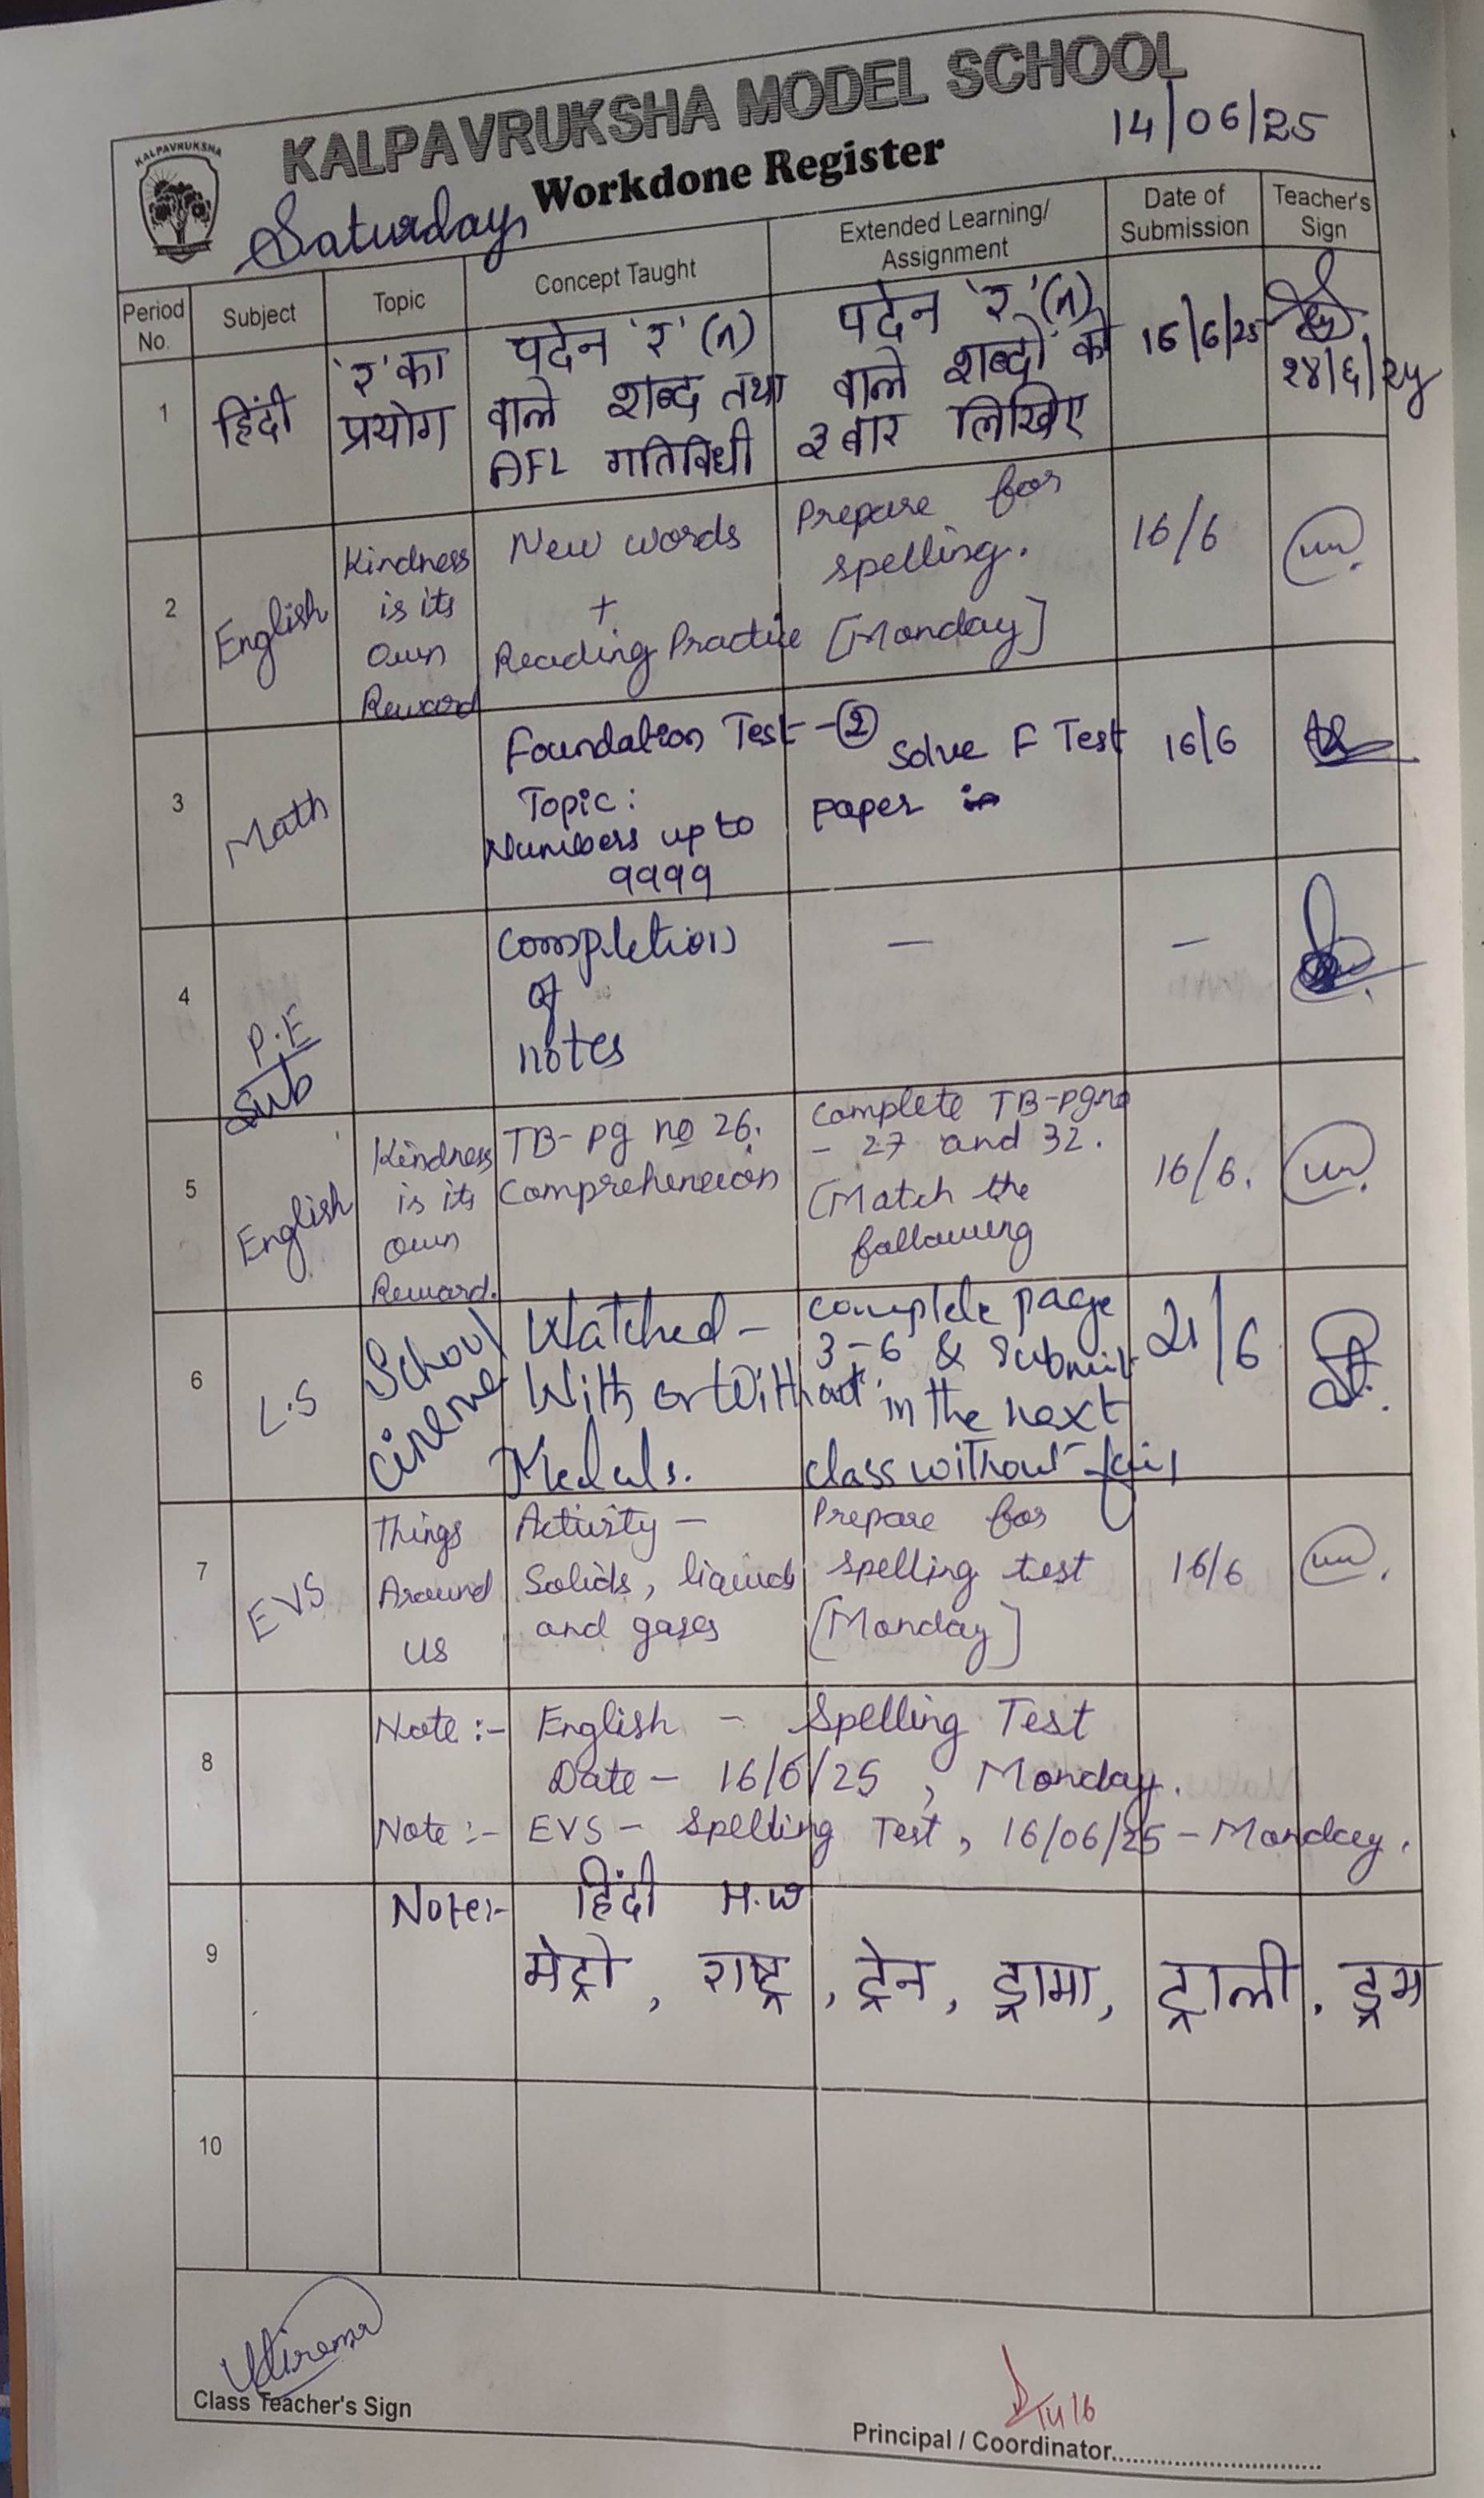 KALPAVRUKSHA MODEL SCHOOL
KALPAVRUKSHA
14/06/25
Workdone Register
Saturday
Period No.
Subject
Topic
Concept Taught
Extended Learning/
Assignment
Date of
Submission
Teacher's
Sign
1
हिंदी
'र' का
प्रयोग
पदेन 'र' (^)
वाले शब्द तथा
AFL गतिविधी
पदेन 'र' (^)
वाले शब्दों को
३ बार लिखिए
16/6/25
१४/६/२५
2
English
Kindness
is its
Own
Reward
New words
+
Reading Practice
Prepare for
spelling.
[Monday]
16/6
3
Math
Foundation Test - ②
Topic:
Numbers up to
9999
Solve F Test
paper
16/6
4
P.E
Sub
Completion
of
notes
—
—
5
English
Kindness
is its
own
Reward.
TB- pg no 26.
Comprehension
Complete TB-pg no
- 27 and 32.
[Match the
following
16/6.
6
L.S
School
Cinema
Watched -
With or Without
Medals.
complete page
3-6 & submit
in the next
class without fail
21/6
7
EVS
Things
Around
us
Activity -
Solids, liquids
and gases
Prepare for
spelling test
[Monday]
16/6
8
Note :- English - Spelling Test
Date - 16/6/25, Monday.
Note :- EVS - Spelling Test, 16/06/25 - Monday.
9
Note:- हिंदी H.W
मेट्रो, राष्ट्र, ट्रेन, ड्रामा, ट्राली, ड्रम
10
Class Teacher's Sign
14/6
Principal / Coordinator..............................